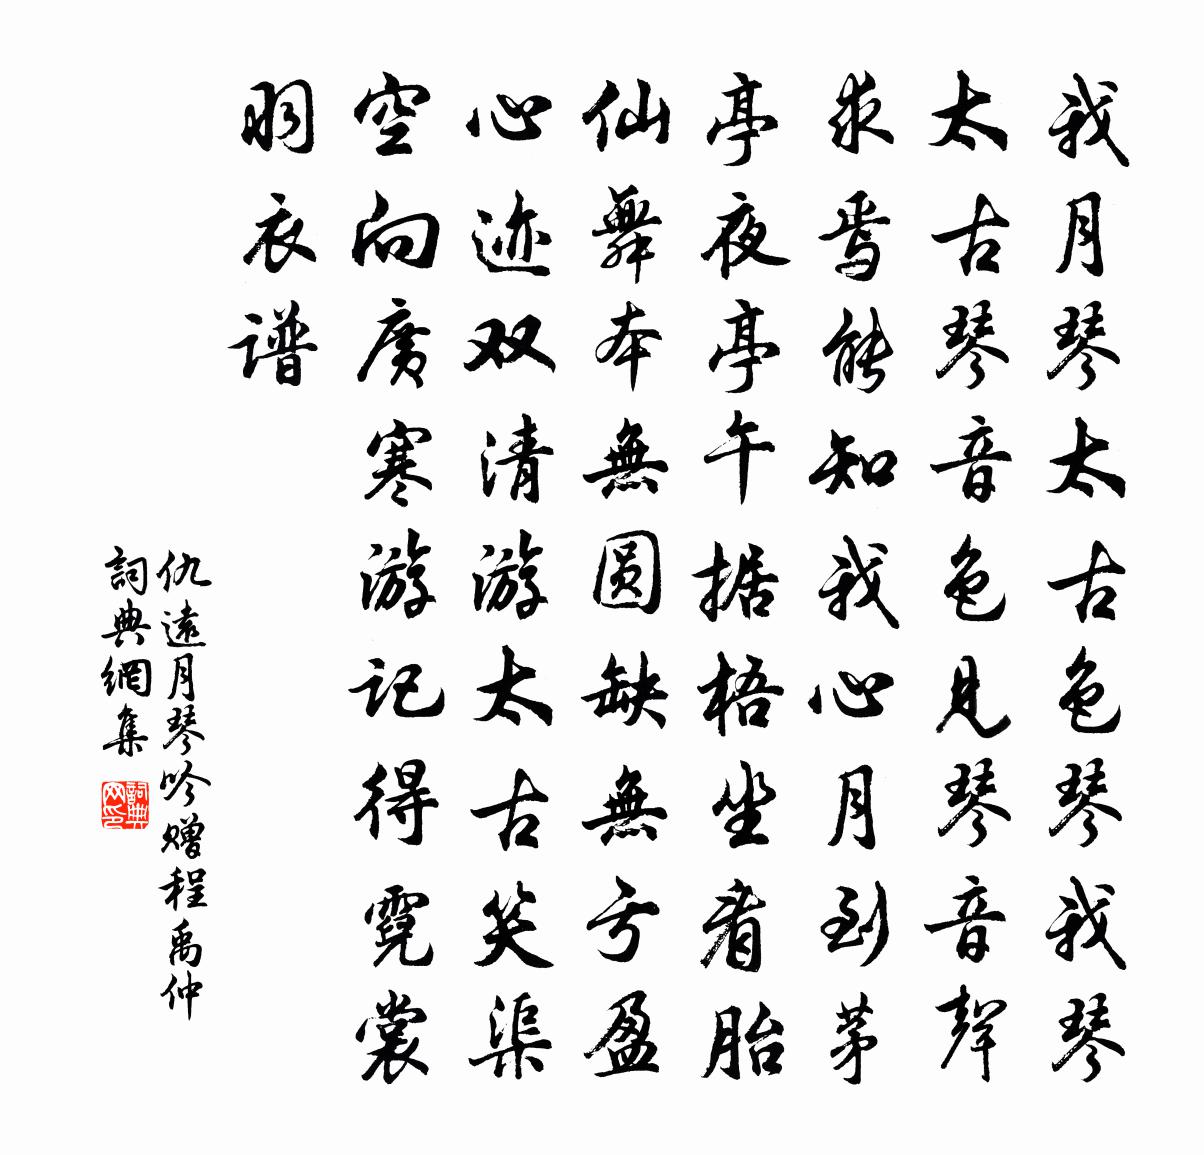 我月琴太古色琴我琴
太古琴音色見琴音聲
求焉能知我心月到茅
亭夜亭午据梧坐看胎
仙舞本無圆缺無亏盈
心迹双清游太古笑渠
空向廣寒游記得霓裳
羽衣谱
仇遠月琴吟赠程禹仲
詞典網集
詞典网印